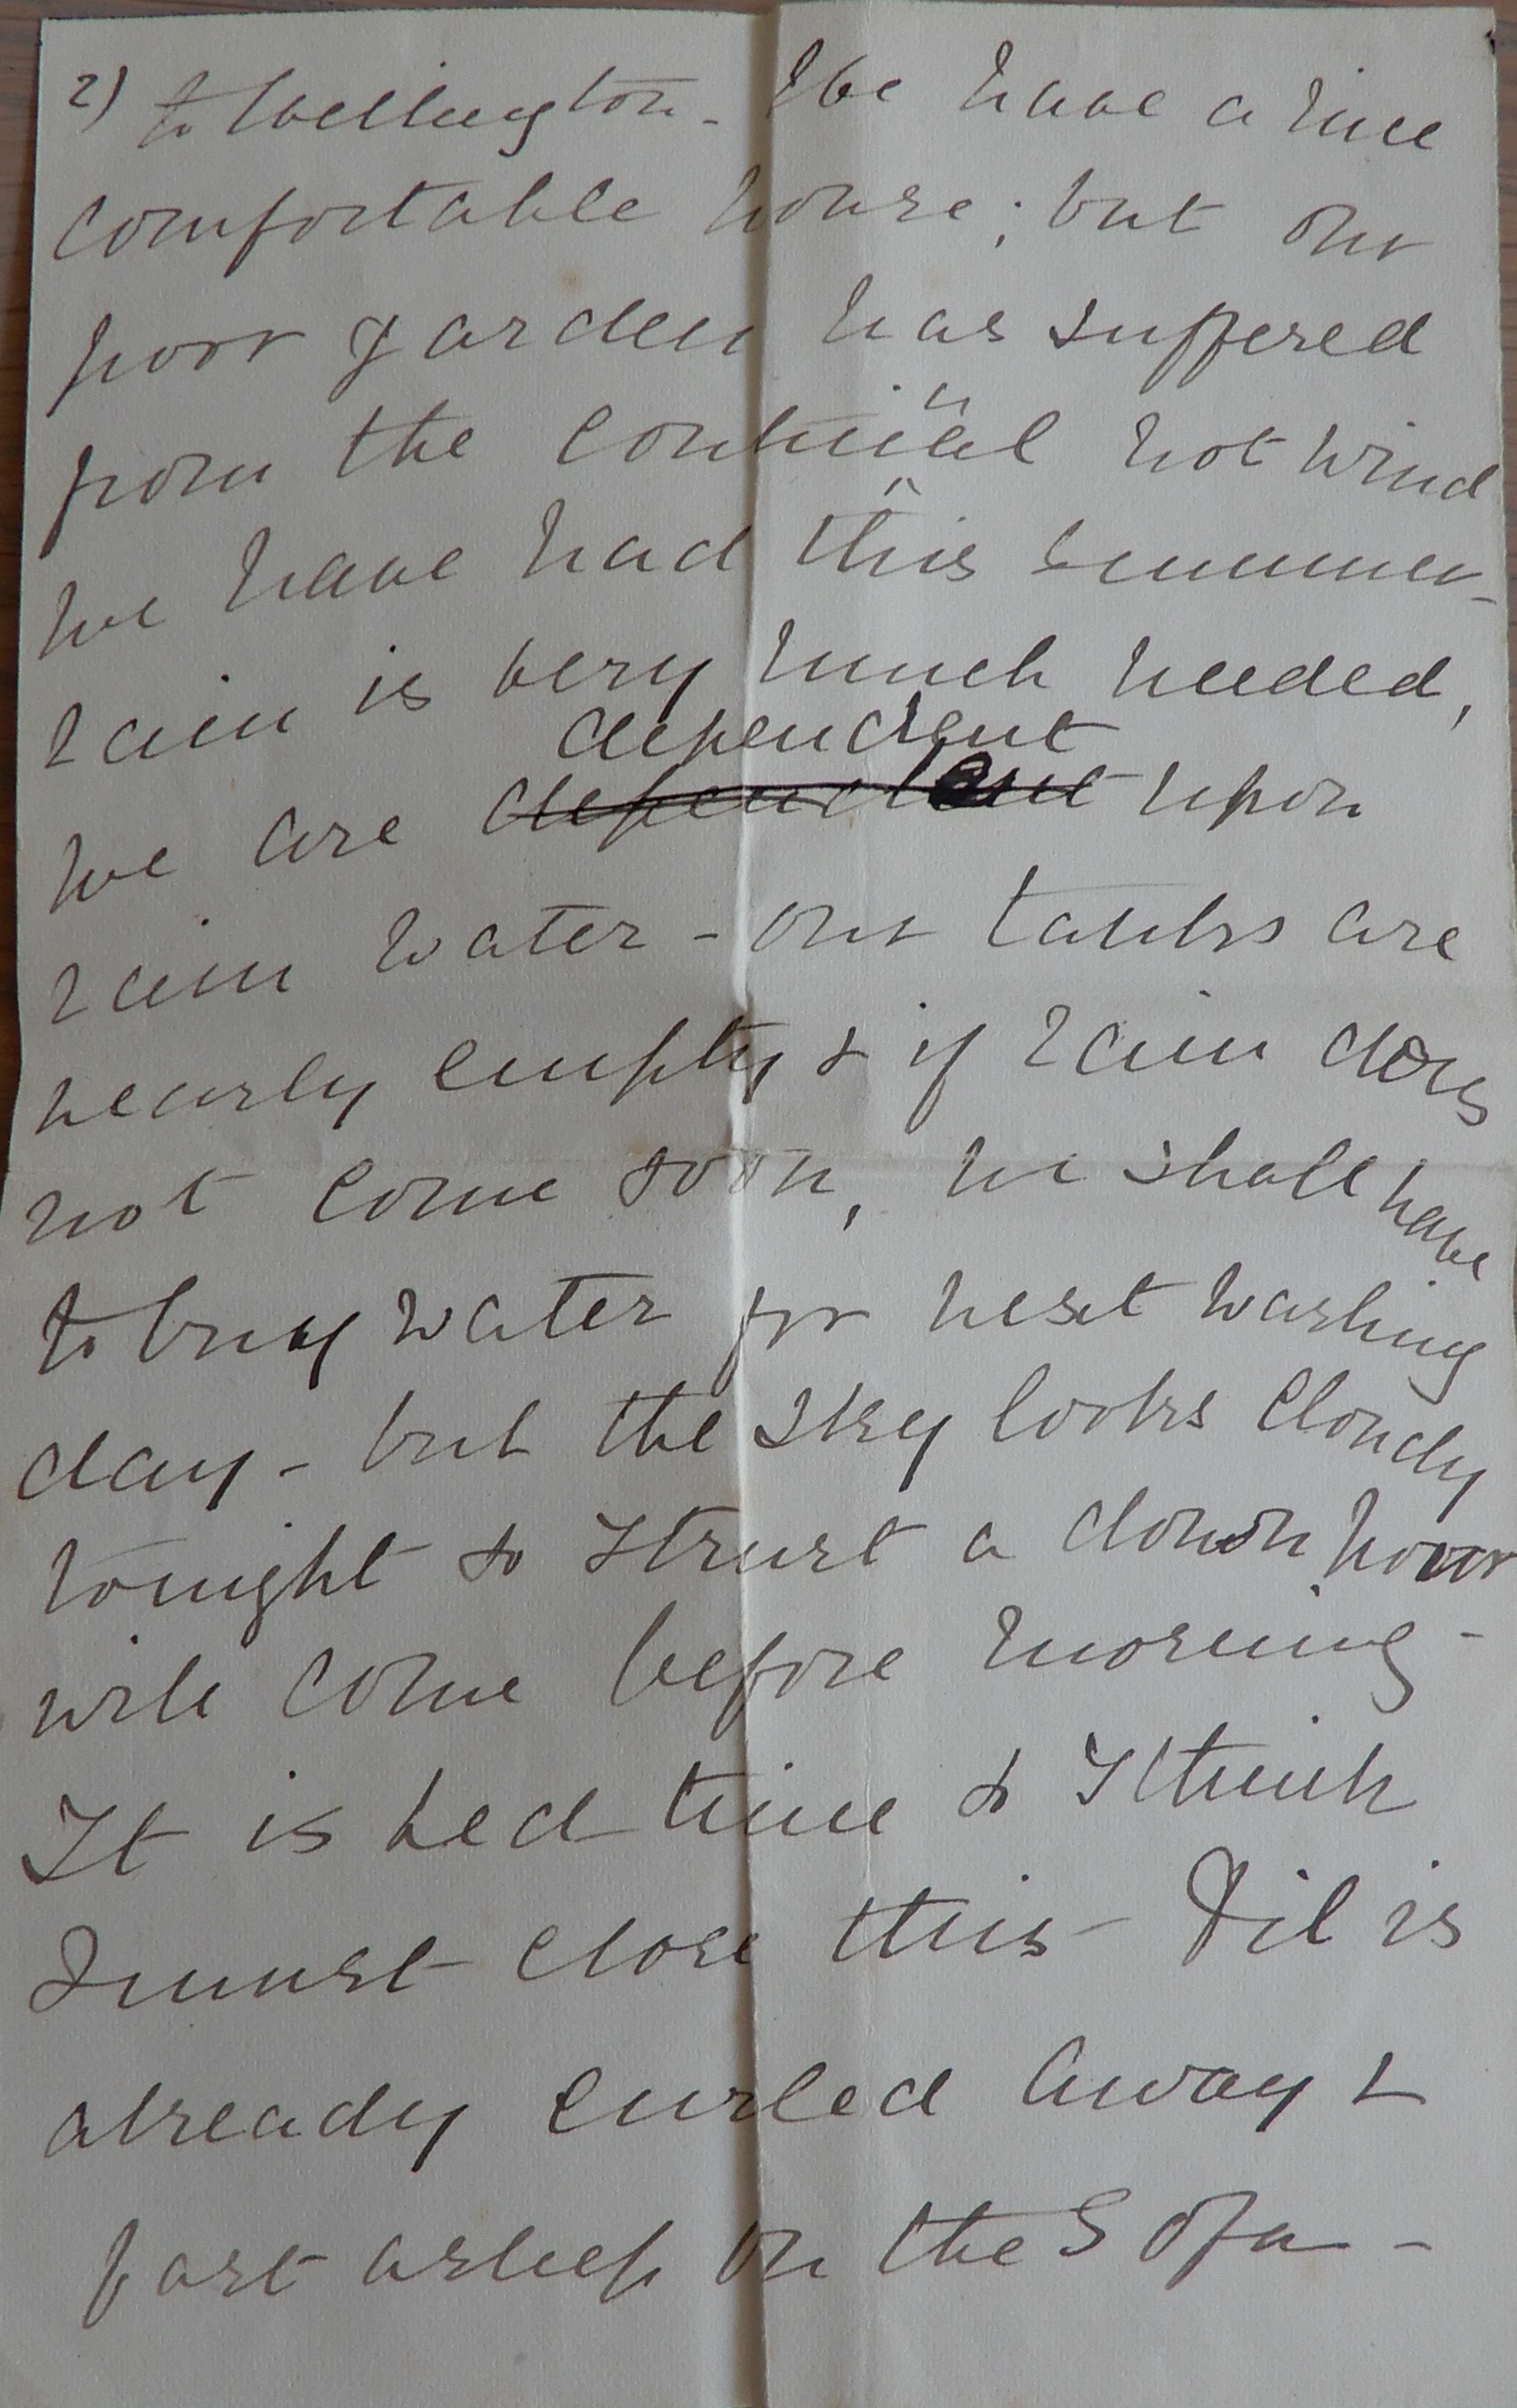 2) to Wellington - We have a nice
comfortable house; but our
poor garden has suffered
from the continual hot wind
we have had this summer -
rain is very much needed,
dependent
we are dependent upon
rain water - our tanks are
nearly empty & if rain does
not come soon, we shall have
to buy water for next washing
day - but the sky looks cloudy
tonight so I trust a down pour
will come before morning -
It is bed time & I think
I must close this - Fil is
already curled away &
fast asleep on the Sofa -